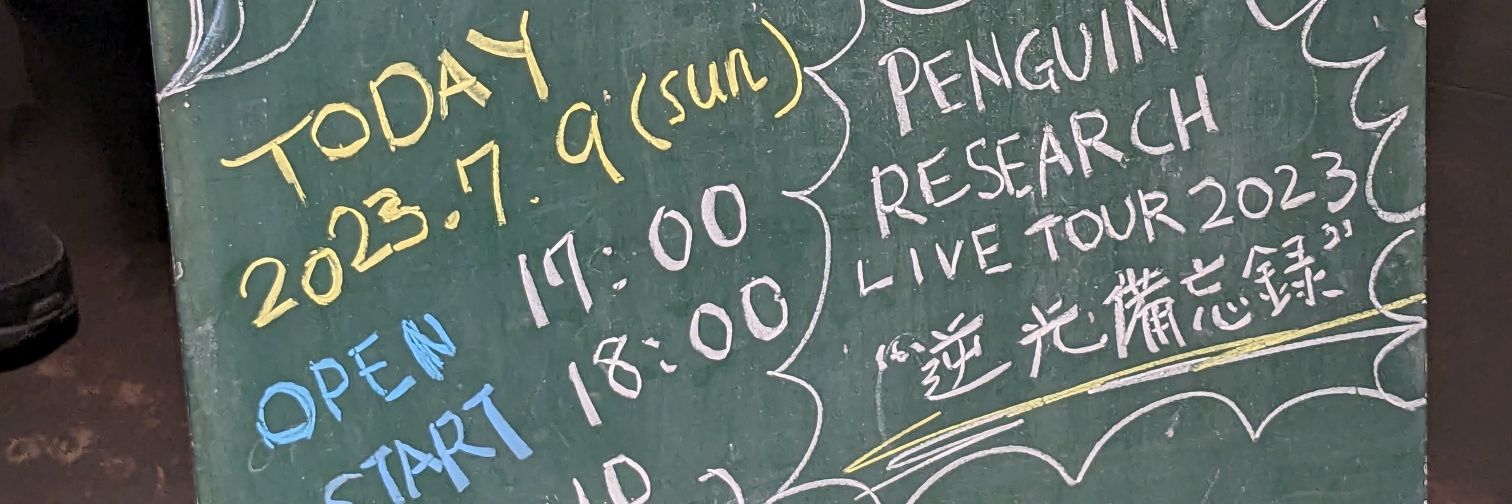 TODAY
2023.7.9(sun)
OPEN 17:00
START 18:00
PENGUIN
RESEARCH
LIVE TOUR 2023
"逆光備忘録"